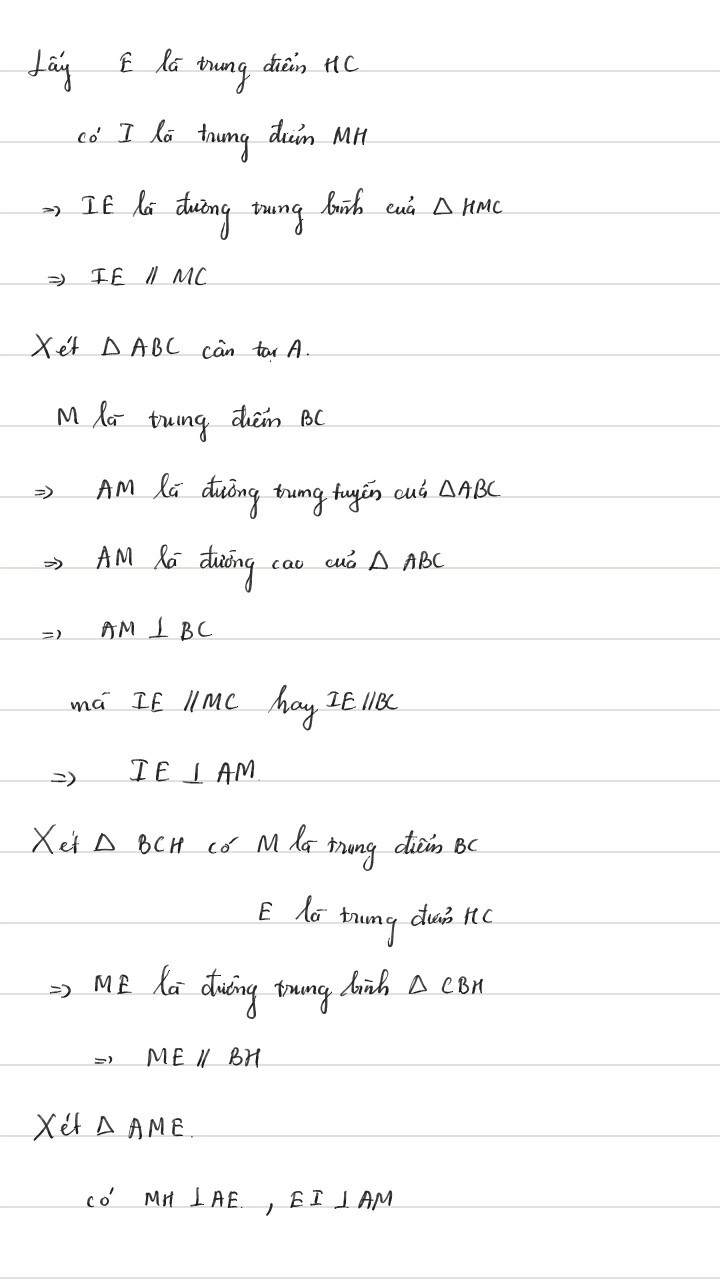 Lấy E là trung điểm HC
có I là trung điểm MH
=> IE là đường trung bình của Δ HMC
=> IE // MC
Xét Δ ABC cân tại A.
M là trung điểm BC
=> AM là đường trung tuyến của ΔABC
=> AM là đường cao của Δ ABC
=> AM ⊥ BC
mà IE // MC hay IE // BC
=> IE ⊥ AM
Xét Δ BCH có M là trung điểm BC
E là trung điểm HC
=> ME là đường trung bình Δ CBH
=> ME // BH
Xét Δ AME.
có MH ⊥ AE , EI ⊥ AM